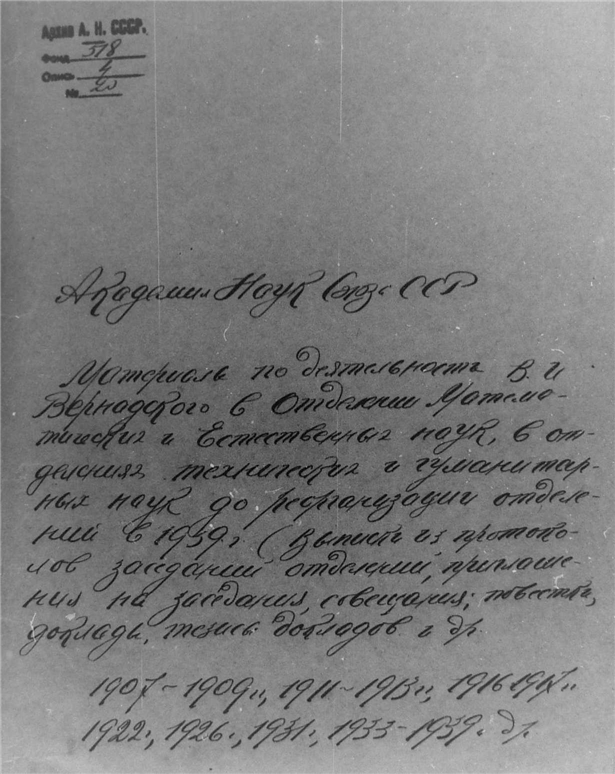 Архив А. Н. СССР.
Фонд 518
Опись 4
№ 20
Академия Наук Союза ССР
Материалы по деятельности В. И
Вернадского в Отделении Матема-
тических и Естественных наук, в от-
делениях технических и гуманитар-
ных наук до реорганизации отделе-
ний в 1939 г. (Выписки из протоко-
лов заседаний отделений, приглаше-
ния на заседания, совещания; повестки,
доклады, тезисы докладов и др.
1907-1909 г., 1911-1913 г., 1916 1917 г.
1922 г., 1926 г., 1931 г., 1933-1939 г.